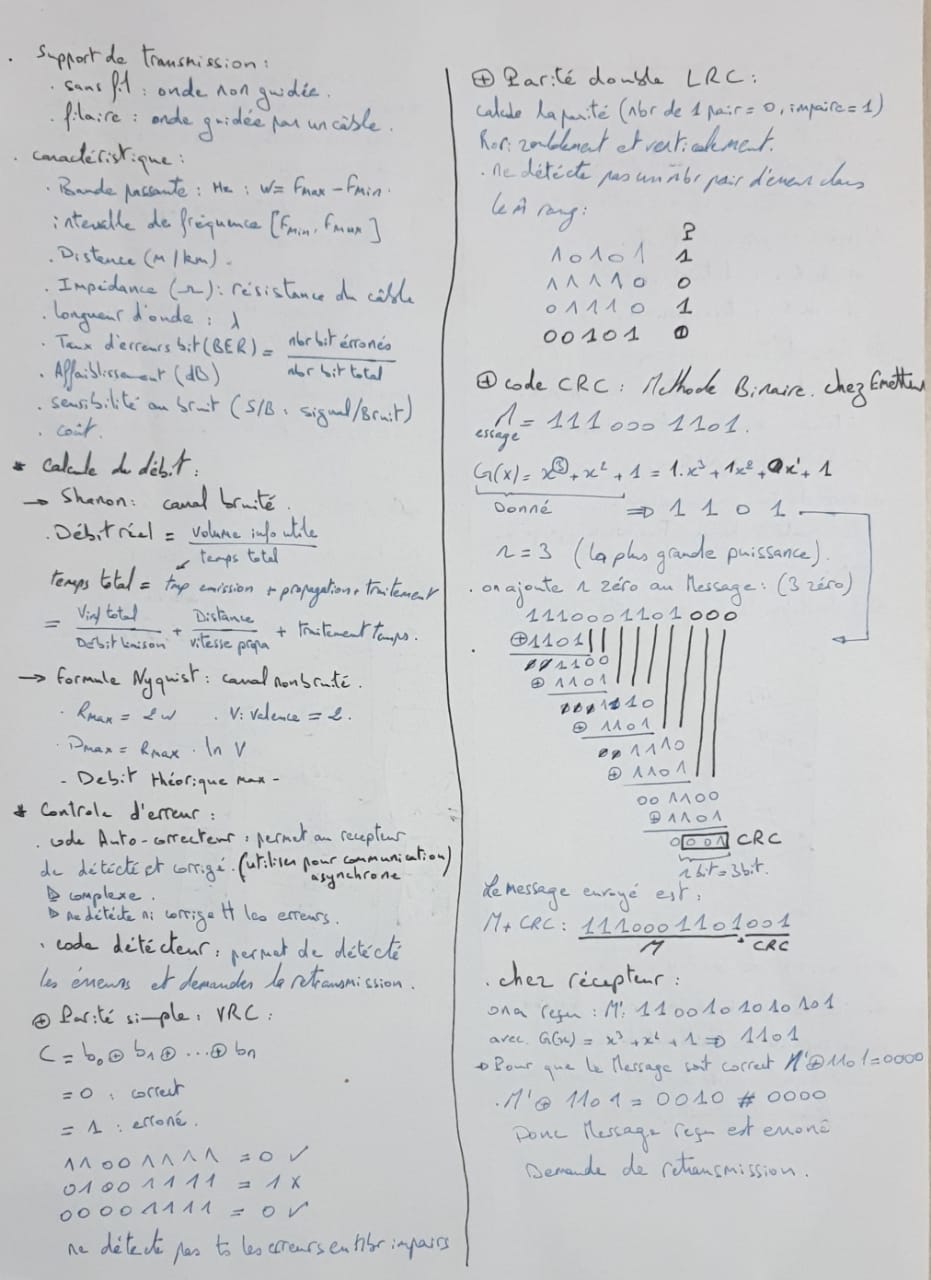 . Support de transmission :
. sans fil : onde non guidée.
. filaire : onde guidée par un câble.
. caractéristique :
. Bande passante : Hz : W = Fmax - Fmin.
intervalle de fréquence [Fmin, Fmax]
. Distance (m/km).
. Impédance (Ω) : résistance du câble
. longueur d'onde : λ
. Taux d'erreurs bit (BER) = nbr bit érronés / nbr bit total
. Affaiblissement (dB)
. sensibilité au bruit (S/B : signal/Bruit)
. coût.
* Calcule du débit :
→ Shanon : canal bruité.
. Débit réel = volume info utile / temps total
temps total = tmp emission + propagation + traitement
= Vinf total / Débit liaison + Distance / vitesse propa + traitement temps.
→ Formule Nyquist : canal non bruité.
. Rmax = 2w . V : valence = 2.
. Dmax = Rmax . ln V
- Debit théorique max -
* Controle d'erreur :
. code Auto-correcteur : permet au recepteur
de détécté et corrigé. (utiliser pour communication asynchrone)
▷ complexe.
▷ ne détécte ni corrige tt les erreurs.
. code détécteur : permet de détécté
les erreurs et demander la retransmission.
⊕ Parité simple : VRC :
C = b0 ⊕ b1 ⊕ ... ⊕ bn
= 0 : correct
= 1 : erroné.
11001111 = 0 ✓
01001111 = 1 x
00001111 = 0 ✓
ne détecte pas ts les erreurs en Nbr impairs
⊕ Parité double LRC :
calcule la parité (nbr de 1 pair = 0, impaire = 1)
Horizontalement et verticalement.
. ne détécte pas un nbr pair d'erreur dans
le m̂ rang :
P
10101 1
11110 0
01110 1
00101 0
⊕ code CRC : Methode Binaire. chez Emetteur
Message = 11100011101.
G(x) = x³ + x² + 1 = 1.x³ + 1x² + 0x¹ + 1
Donné ⇒ 1 1 0 1
r = 3 (la plus grande puissance).
. on ajoute r zéro au Message : (3 zéro)
11100011101000
⊕1101
001100
⊕ 1101
0001110
⊕ 1101
001110
⊕ 1101
001100
⊕1101
0001 CRC
r bit = 3bit.
Le message envoyé est :
M + CRC : 11100011101001
M CRC
. chez récepteur :
on a reçu : M' : 1100101010101
avec G(x) = x³ + x² + 1 ⇒ 1101
→ Pour que le Message soit correct M'⊕1101=0000
. M'⊕ 1101 = 0010 # 0000
Donc Message reçu est erroné
Demande de retransmission.